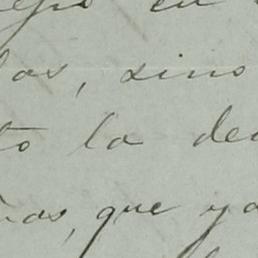 en
las, sino
to la de
ñas, que ya